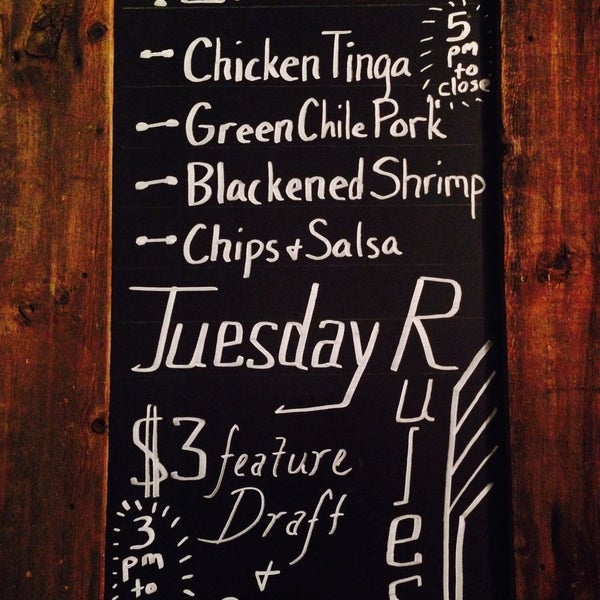 — Chicken Tinga
5
pm
to
close
— Green Chile Pork
— Blackened Shrimp
— Chips & Salsa
Tuesday Rules
$3 feature
Draft
&
3
pm
to